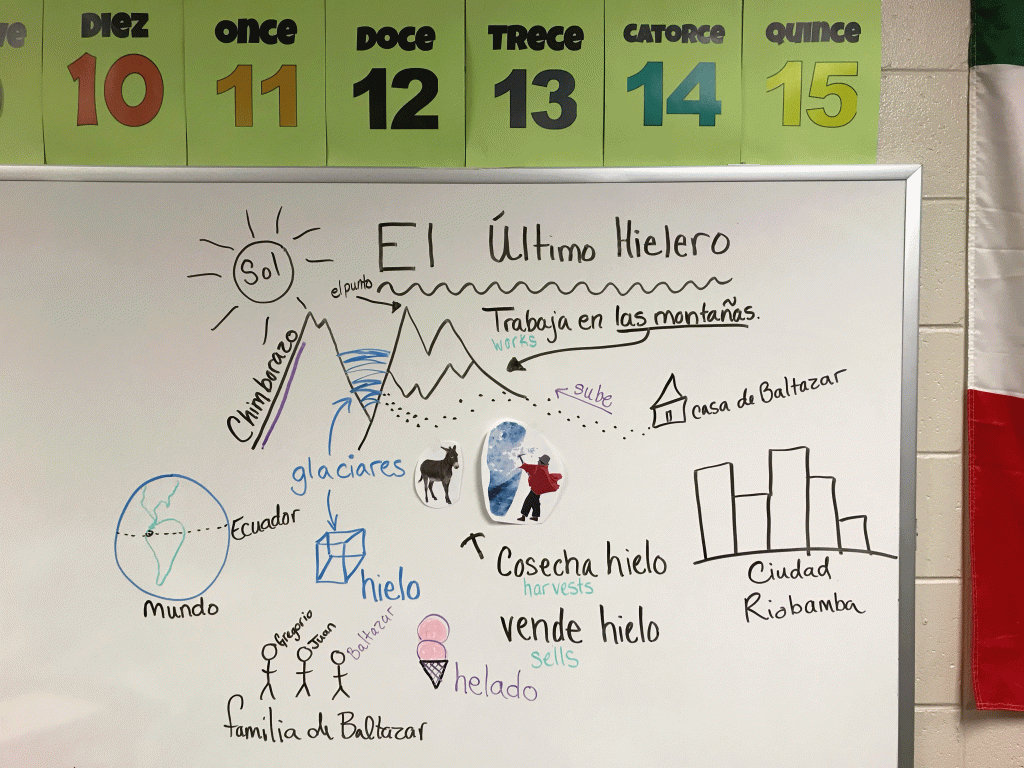 DIEZ ONCE DOCE TRECE CATORCE QUINCE
10 11 12 13 14 15
El Último Hielero
Sol
el punto
Trabaja en las montañas.
works
Chimborazo
sube
casa de Baltazar
glaciares
Ecuador
Mundo
hielo
Cosecha hielo
harvests
vende hielo
sells
Ciudad
Riobamba
Gregorio
Juan
Baltazar
familia de Baltazar
helado